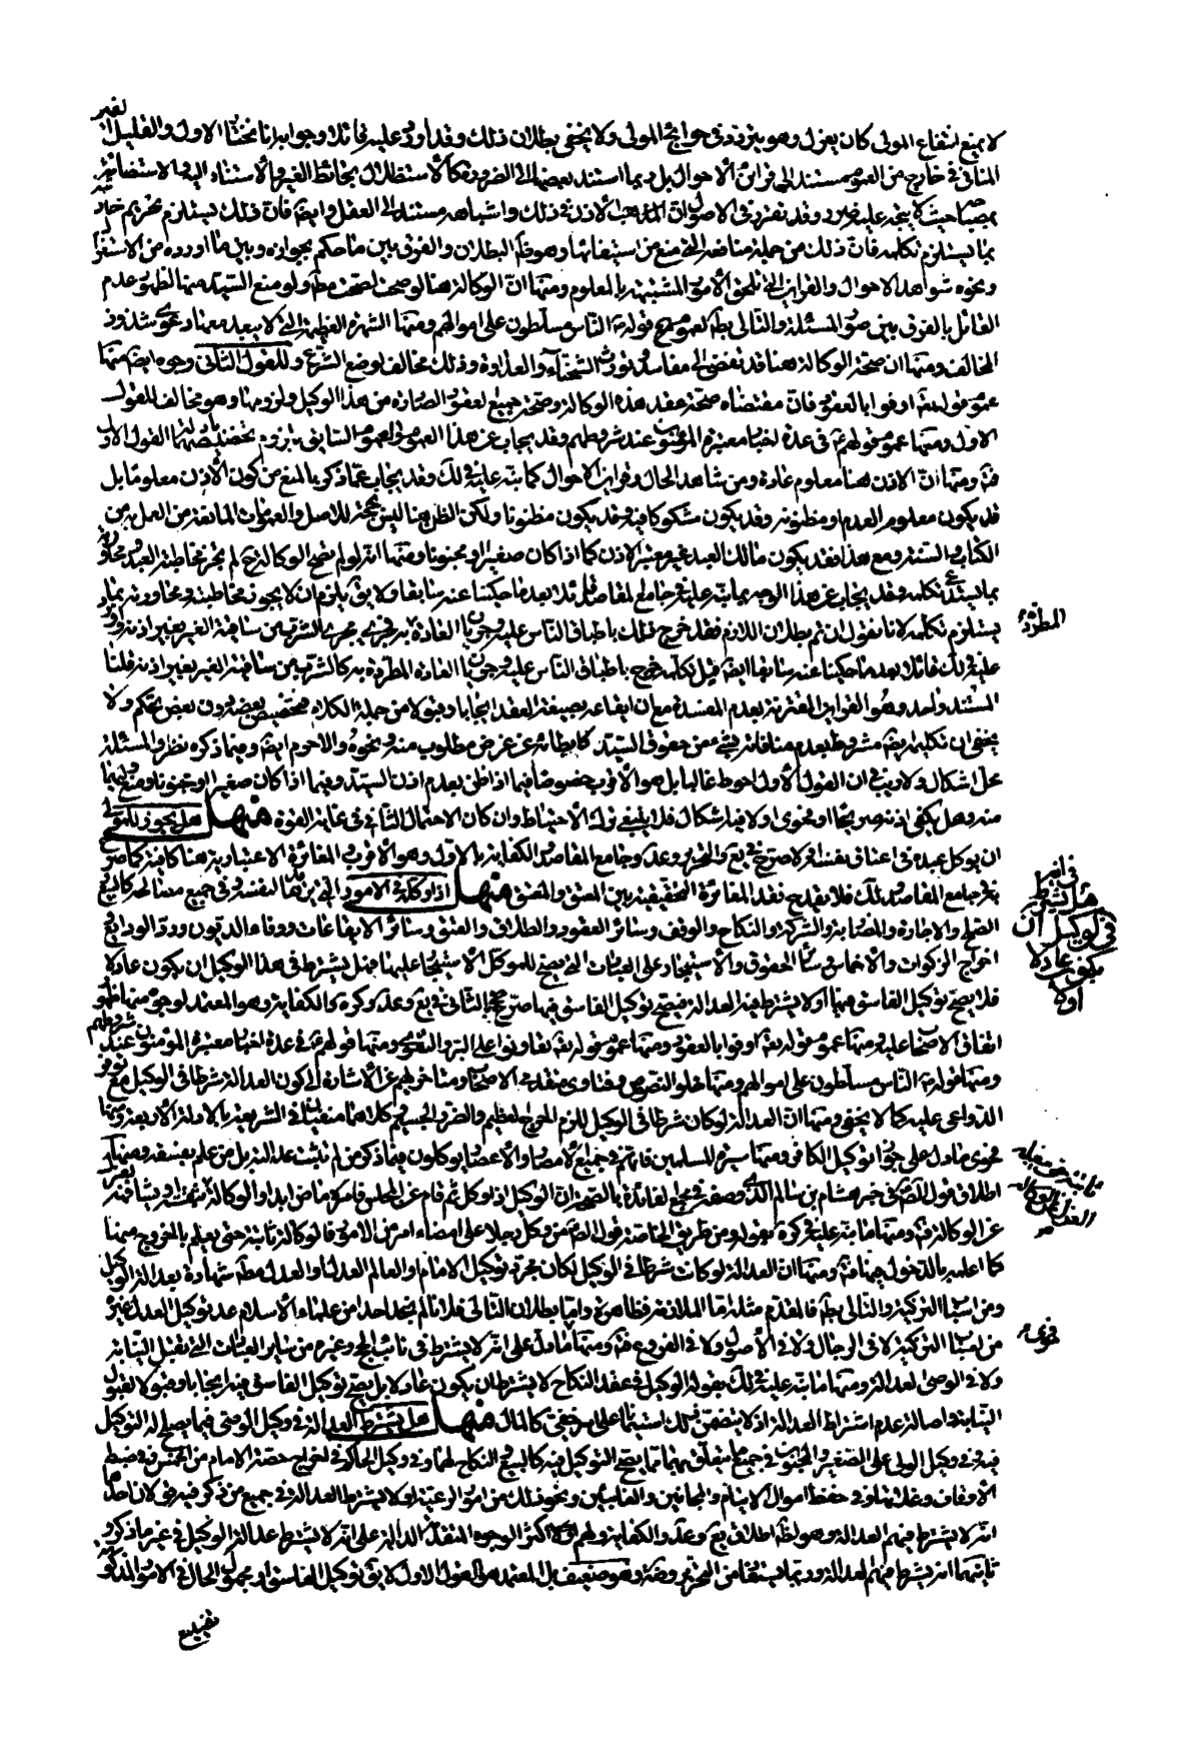 لا يمنع انتفاع المولى كان يغزل وهو يتردد في حوائج المولى ولا يخفى بطلان ذلك وقد أورد عليه قائلا وجوابه انا نختار الاول والقليل الغير
المنافي خارج من العموم مستند الى قرائن الأحوال بل ربما استند بعضها الى الضرورة كالاستظلال بحائط الغير والاستناد اليه والاستضائة
بمصباحه حيث لا يتجه عليه ضرر وقد تقرر في الاصول ان المذهب الاذن في ذلك واشباهه مستند الى العقل وايضا فان ذلك يستلزم تحريم
بما يستلزم تكلمه فان ذلك من جملة منافعه التي منع من استيفائها وهو ظاهر البطلان والفرق بين ما حكم بجوازه وبين ما اورده من الاستقراء
ونحوه شواهد الاحوال والقرائن التي تلحق الأمور المشتبهة بالمعلوم ومنها ان الوكالة هنا لو صحت لصحت مطلقا ولو منع السيد منها لظهور عدم
القائل بالفرق بين صور المسئلة والتالي بط لعموم قوله الناس مسلطون على اموالهم ومنها الشهرة العظيمة التي لا يبعد معها دعوى شذوذ
المخالف ومنها ان صحة الوكالة هنا قد تفضي الى مفاسد تورث الشحناء والعداوة وذلك مخالف لوضع الشرع وللقول الثاني وجوه ايضا منها
عموم قوله تعالى اوفوا بالعقود فان مقتضاه صحة عقد هذه الوكالة وصحة جميع العقود الصادرة من هذا الوكيل ولزومها وهو مخالف للقول
الاول ومنها عموم قولهم في عدة اخبار معتبرة المؤمنون عند شروطهم وقد يجاب عن هذا العموم والعموم السابق بلزوم تخصيصهما بادلة القول الاول
فتأمل ومنها ان الاذن هنا معلوم عادة ومن شاهد الحال وقرائن الاحوال كما نبه عليه في لك وقد يجاب عما ذكر بالمنع من كون الاذن معلوما بل
قد يكون معلوم العدم او مظنونه وقد يكون مشكوكا فيه وقد يكون مظنونا ولكن الظن هنا ليس بحجة للاصل والعمومات المانعة من العمل به من
الكتاب والسنة ومع هذا فقد يكون مالك العبد غير معتبر الاذن كما اذا كان صغيرا او مجنونا ومنها انه لو لم يصح الوكالة هنا لم يجز مخاطبة العبد ومحاورته
بما يستدعي تكلمه وقد يجاب عن هذا الوجه بما نبه عليه في جامع المقاصد قائلا بعد ما حكينا عنه سابقا ولا يق يلزم ان لا يجوز مخاطبته ومحاورته بما
يستلزم تكلمه لانا نقول ان تم بطلان اللازم فقد خرج ذلك باطباق الناس عليه وجريان العادة به فجرى مجرى الشرب من ساقية الغير بغير اذنه واورد
عليه في لك قائلا بعد ما حكينا عنه سابقا ايضا قيل تكلمه خرج باطباق الناس عليه وجريان العادة المطردة به كالشرب من ساقية الغير بغير اذنه قلنا
المستند واحد وهو القرائن المقترنة بعدم المفسدة مع ان ايقاعه بصيغة العقد ايجابا وقبولا من جملة الكلام فتخصيص بعضه دون بعض تحكم ولا
يخفى ان تكليمه ايضا مشروط بعدم منافاته شيء من حقوق السيد كابطائه عن غرض مطلوب منه ونحوه والاحرم ايضا وفيما ذكره نظر والمسئلة
محل اشكال ولا ريب في ان القول الاول احوط غالبا بل هو الأقرب خصوصا فيما اذا ظن بعدم اذن السيد وفيما اذا كان صغيرا او مجنونا ومنع وليهما
منه وهل يكفي اذنه صريحا او فحوى اولا فيه اشكال فلا ينبغي ترك الاحتياط وان كان الاحتمال الثاني في غاية القوة منها هل يجوز للمولى
ان يوكل عبده في اعتاق نفسه او لا صرح في يع والتحرير وعد وجامع المقاصد والكفاية بالاول وهو الأقرب والمغائرة الاعتبارية هنا كافية كما صرح
به في جامع المقاصد ولك فلا يقدح فقد المغايرة الحقيقية بين المعتق والمعتق منها اذا وكله في الامور التي يرجع نفعها لنفسه وفي جميع مصالحه كالبيع
الصلح والاجارة والمضاربة والشركة والنكاح والوقف وسائر العقود والطلاق والعتق وسائر الايقاعات ووفاء الديون ورد الودايع
اخراج الزكوات والأخماس وسائر الحقوق والأستيجار على العبادات التي يصح للموكل الاستيجار عليها فهل يشترط في هذا الوكيل ان يكون عادلا
فلا يصح توكيل الفاسق فيها او لا يشترط فيه العدالة فيصح توكيل الفاسق فيها صرح بالثاني في يع وعد وكرة والكفاية وهو المعتمد لوجوه منها ظهور
اتفاق الاصحاب عليه ومنها عموم قوله تعالى اوفوا بالعقود ومنها عموم قوله تعالى تعاونوا على البر والتقوى ومنها قولهم في عدة اخبار معتبرة المؤمنون عند شروطهم
ومنها قوله الناس مسلطون على اموالهم ومنها خلو النصوص وفتاوى متقدمي الاصحاب ومتاخريهم عن الأشارة الى كون العدالة شرطا في الوكيل مع توفر
الدواعي عليه كما لا يخفى ومنها ان العدالة لو كان شرطا في الوكيل للزم الحرج العظيم والضرر الجسيم وكلاهما منفيان في الشريعة بالادلة الأربعة ومنها
فحوى ما دل على جواز توكيل الكافر ومنها سيرة المسلمين فانهم في جميع الأمصار والأعصار يوكلون فيما ذكر من لم تثبت عدالته بل من علم بفسقه ومنها
اطلاق قول الصادق في خبر هشام بن سالم الذي وصفه في مجمع الفائدة بالصحة ان الوكيل اذا وكل ثم قام عن المجلس فامره ماض ابدا والوكالة ثابتة حتى يبلغه
عن الوكالة بثقة ومنها ما نبه عليه في كرة بقوله ومن طريق الخاصة قول الصادق من وكل رجلا على امضاء امر من الامور فالوكالة ثابتة حتى يعلم بالخروج منها
كما اعلمه بالدخول فيها فتأمل ومنها ان العدالة لو كانت شرطا في الوكيل لكان مجرد توكيل الامام والعالم العدل والعدل مطلقا شهادة بعدالة الوكيل
ومن اسباب التزكية والتالي بط فالمقدم مثله اما الملازمة فظاهرة واما بطلان التالي فلانا لم نجد احدا من علماء الأسلام عد توكيل العدل غيره
من اسباب التزكية لا في الرجال ولا في الأصول ولا في الفروع فتأمل ومنها ما دل على انه لا يشترط في نائب الحج وغيره من ساير العبادات التي تقبل النيابة
ولا في الوصي العدالة ومنها ما نبه عليه في لك بقوله الوكيل في عقد النكاح لا يشترط ان يكون عادلا بل يصح توكيل الفاسق فيه ايجابا وقبولا لقبول
النيابة واصالة عدم اشتراط العدالة اذ لا يتضمن ذلك استيمانا على امر خفي كالمال منها هل يشترط العدالة في وكيل الوصي فيما يصلح له التوكيل
فيه وفي وكيل الولي على الصغير والمجنون في جميع ما يتعلق بهما مما يصح التوكيل فيه كالبيع والنكاح لهما وفي وكيل الحاكم في اخراج حصة الامام من الخمس وفي ضبط
الأوقاف وغلاتها وفي حفظ اموال الايتام والمجانين والغائبين ونحو ذلك من امور الرعية او لا يشترط العدالة في جميع من ذكر فيه قولان احدهما
انه لا يشترط فيهم العدالة وهو لظ اطلاق يع وعد والكفاية ولهم اكثر الوجوه المتقدمة الدالة على انه لا يشترط عدالة الوكيل في غير ما ذكر و
ثانيهما انه يشترط فيهم العدالة وربما يستفاد من التحرير وضة وهو ضعيف بل المعتمد هو القول الاول لا يق توكيل الفاسق او مجهول الحال في الامور المذكورة
تضييع
المطردة
في انه
هل يشترط
في الوكيل ان
يكون عادلا
اولا